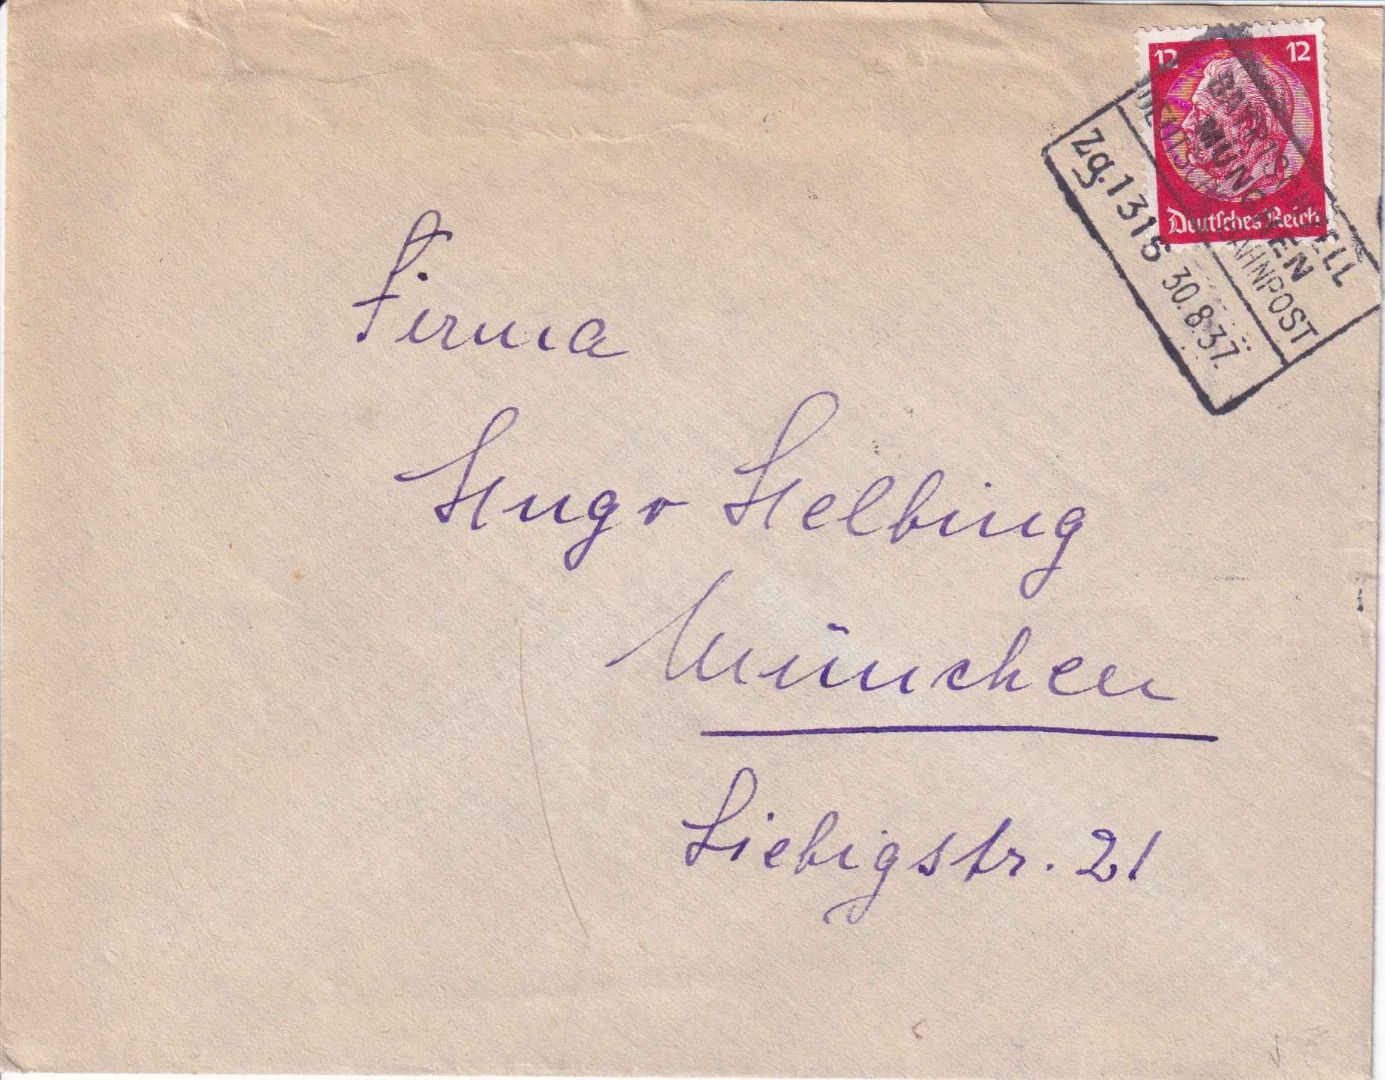 12 12
Deutsches Reich
BAYRISCHZELL
MÜNCHEN
BAHNPOST
Zg.1315 30.8.37.
Firma
Hugo Helbing
München
Liebigstr. 21